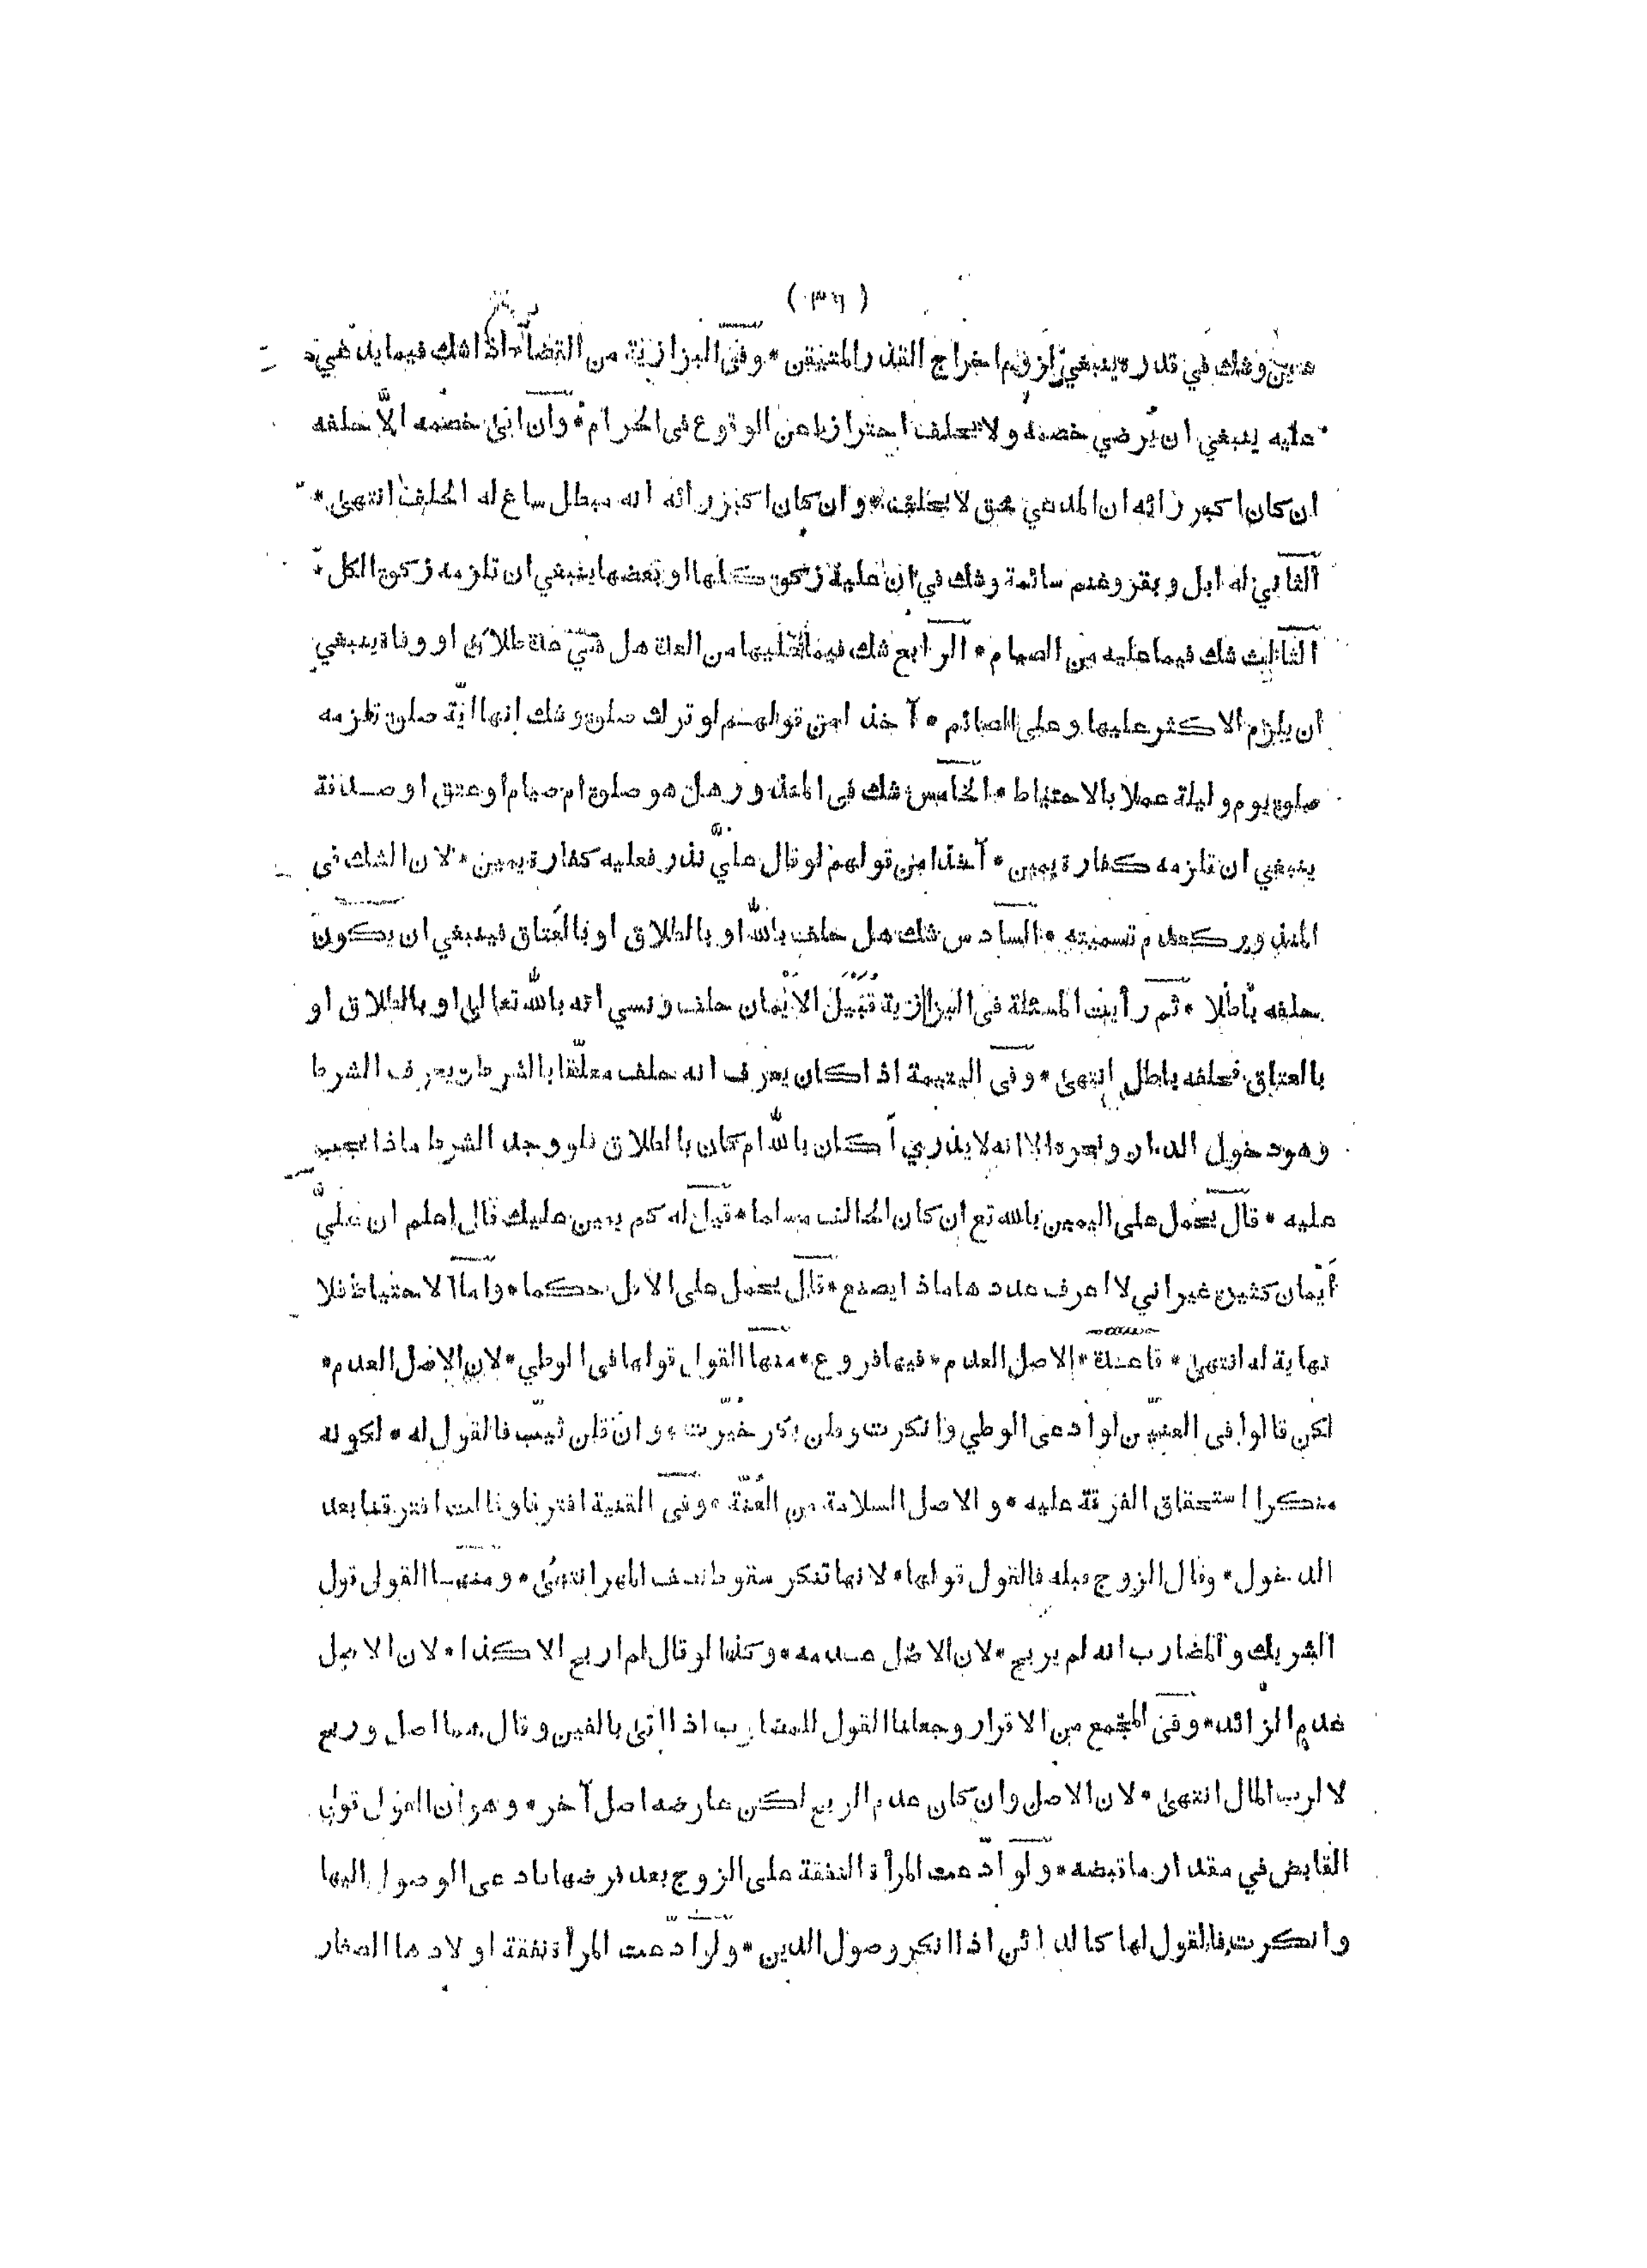 ( ٣٦ )
دين وشك في قدره ينبغي لزوم اخراج القدر المتيقن * وفى البزازية من القضاء اذا شك فيما يدعي
عليه ينبغي ان يرضي خصمه ولا يحلف احترازا عن الوقوع فى الحرام * وان ابى خصمه الا حلفه
ان كان اكبر رائه ان المدعي محق لا يحلف * وان كان اكبر رائه انه مبطل ساغ له الحلف انتهى *
الثاني له ابل وبقر وغنم سائمة وشك في ان عليه زكوة كلها او بعضها ينبغي ان تلزمه زكوة الكل *
الثالث شك فيما عليه من الصيام * الرابع شك فيما عليها من العدة هل هي عدة طلاق او وفاة ينبغي
ان يلزم الاكثر عليها وعلى الصائم * آخذا من قولهم لو ترك صلوة وشك انها ايّة صلوة تلزمه
صلوة يوم وليلة عملا بالاحتياط * الخامس شك فى المنذور هل هو صلوة ام صيام او عتق او صدقة
ينبغي ان تلزمه كفارة يمين * آخذا من قولهم لو قال علي نذر فعليه كفارة يمين * لان الشك فى
المنذور كعدم تسميته * السادس شك هل حلف بالله او بالطلاق او بالعتاق فينبغي ان يكون
حلفه باطلا * ثم رأيت المسئلة فى البزازية قُبَيْلَ الايْمان حلف ونسي انه بالله تعالى او بالطلاق او
بالعتاق فحلفه باطل انتهى * وفى اليتيمة اذا كان يعرف انه حلف معلّقا بالشرط ويعرف الشرط
وهو دخول الدار ونحوه الا انه لا يدري أكان بالله ام كان بالطلاق فلو وجد الشرط ماذا يجب
عليه * قال يحمل على اليمين بالله تع ان كان الحالف مسلما * قيل له كم يمين عليك قال اعلم ان عليّ
أيمان كثيرة غير اني لا اعرف عددها ماذا يصنع * قال يحمل على الاقل حكما * واما الاحتياط فلا
نهاية له انتهى * قاعدة * الاصل العدم * فيها فروع * منها القول قولها فى الوطي * لان الاصل العدم *
لكن قالوا فى العنّين لو ادعى الوطي وانكرت وقلن بكر خيّرت * وان قلن ثيّب فالقول له * لكونه
منكرا استحقاق الفرقة عليه * والاصل السلامة من العُنّة * وفى القنية افترقا وقالت افترقنا بعد
الدخول * وقال الزوج قبله فالقول قولها * لانها تنكر سقوط نصف المهر انتهى * ومنها القول قول
الشريك والمضارب انه لم يربح * لان الاصل عدمه * وكذا لو قال لم اربح الا كذا * لان الاصل
عدم الزائد * وفى المجمع من الاقرار وجعلنا القول للمضارب اذا اتى بالفين وقال هما اصل وربح
لا لرب المال انتهى * لان الاصل وان كان عدم الربح لكن عارضه اصل آخر * وهو ان القول قول
القابض في مقدار ما قبضه * ولو ادّعت المرأة النفقة على الزوج بعد فرضها فادعى الوصول اليها
وانكرت فالقول لها كالدائن اذا انكر وصول الدين * ولو ادّعت المرأة نفقة اولادها الصغار